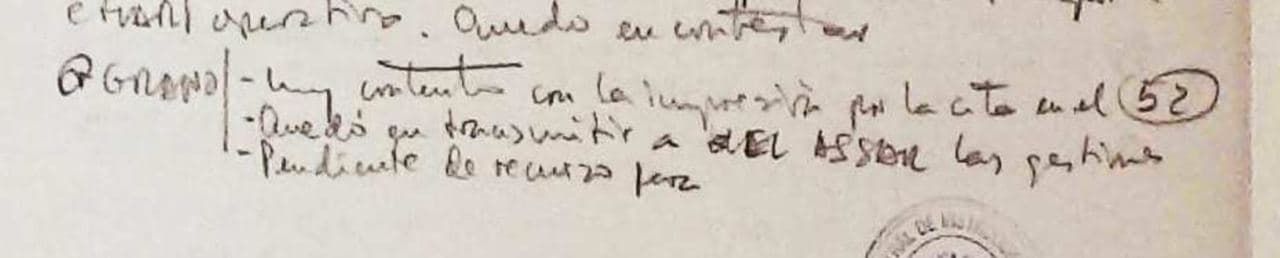 operativo. Quedo en contestar
GRANO - Muy contento con la impresión por la cita en el 52
- Quedó en transmitir a DEL ASSAR las gestiones
- Pendiente de recurso para
DE